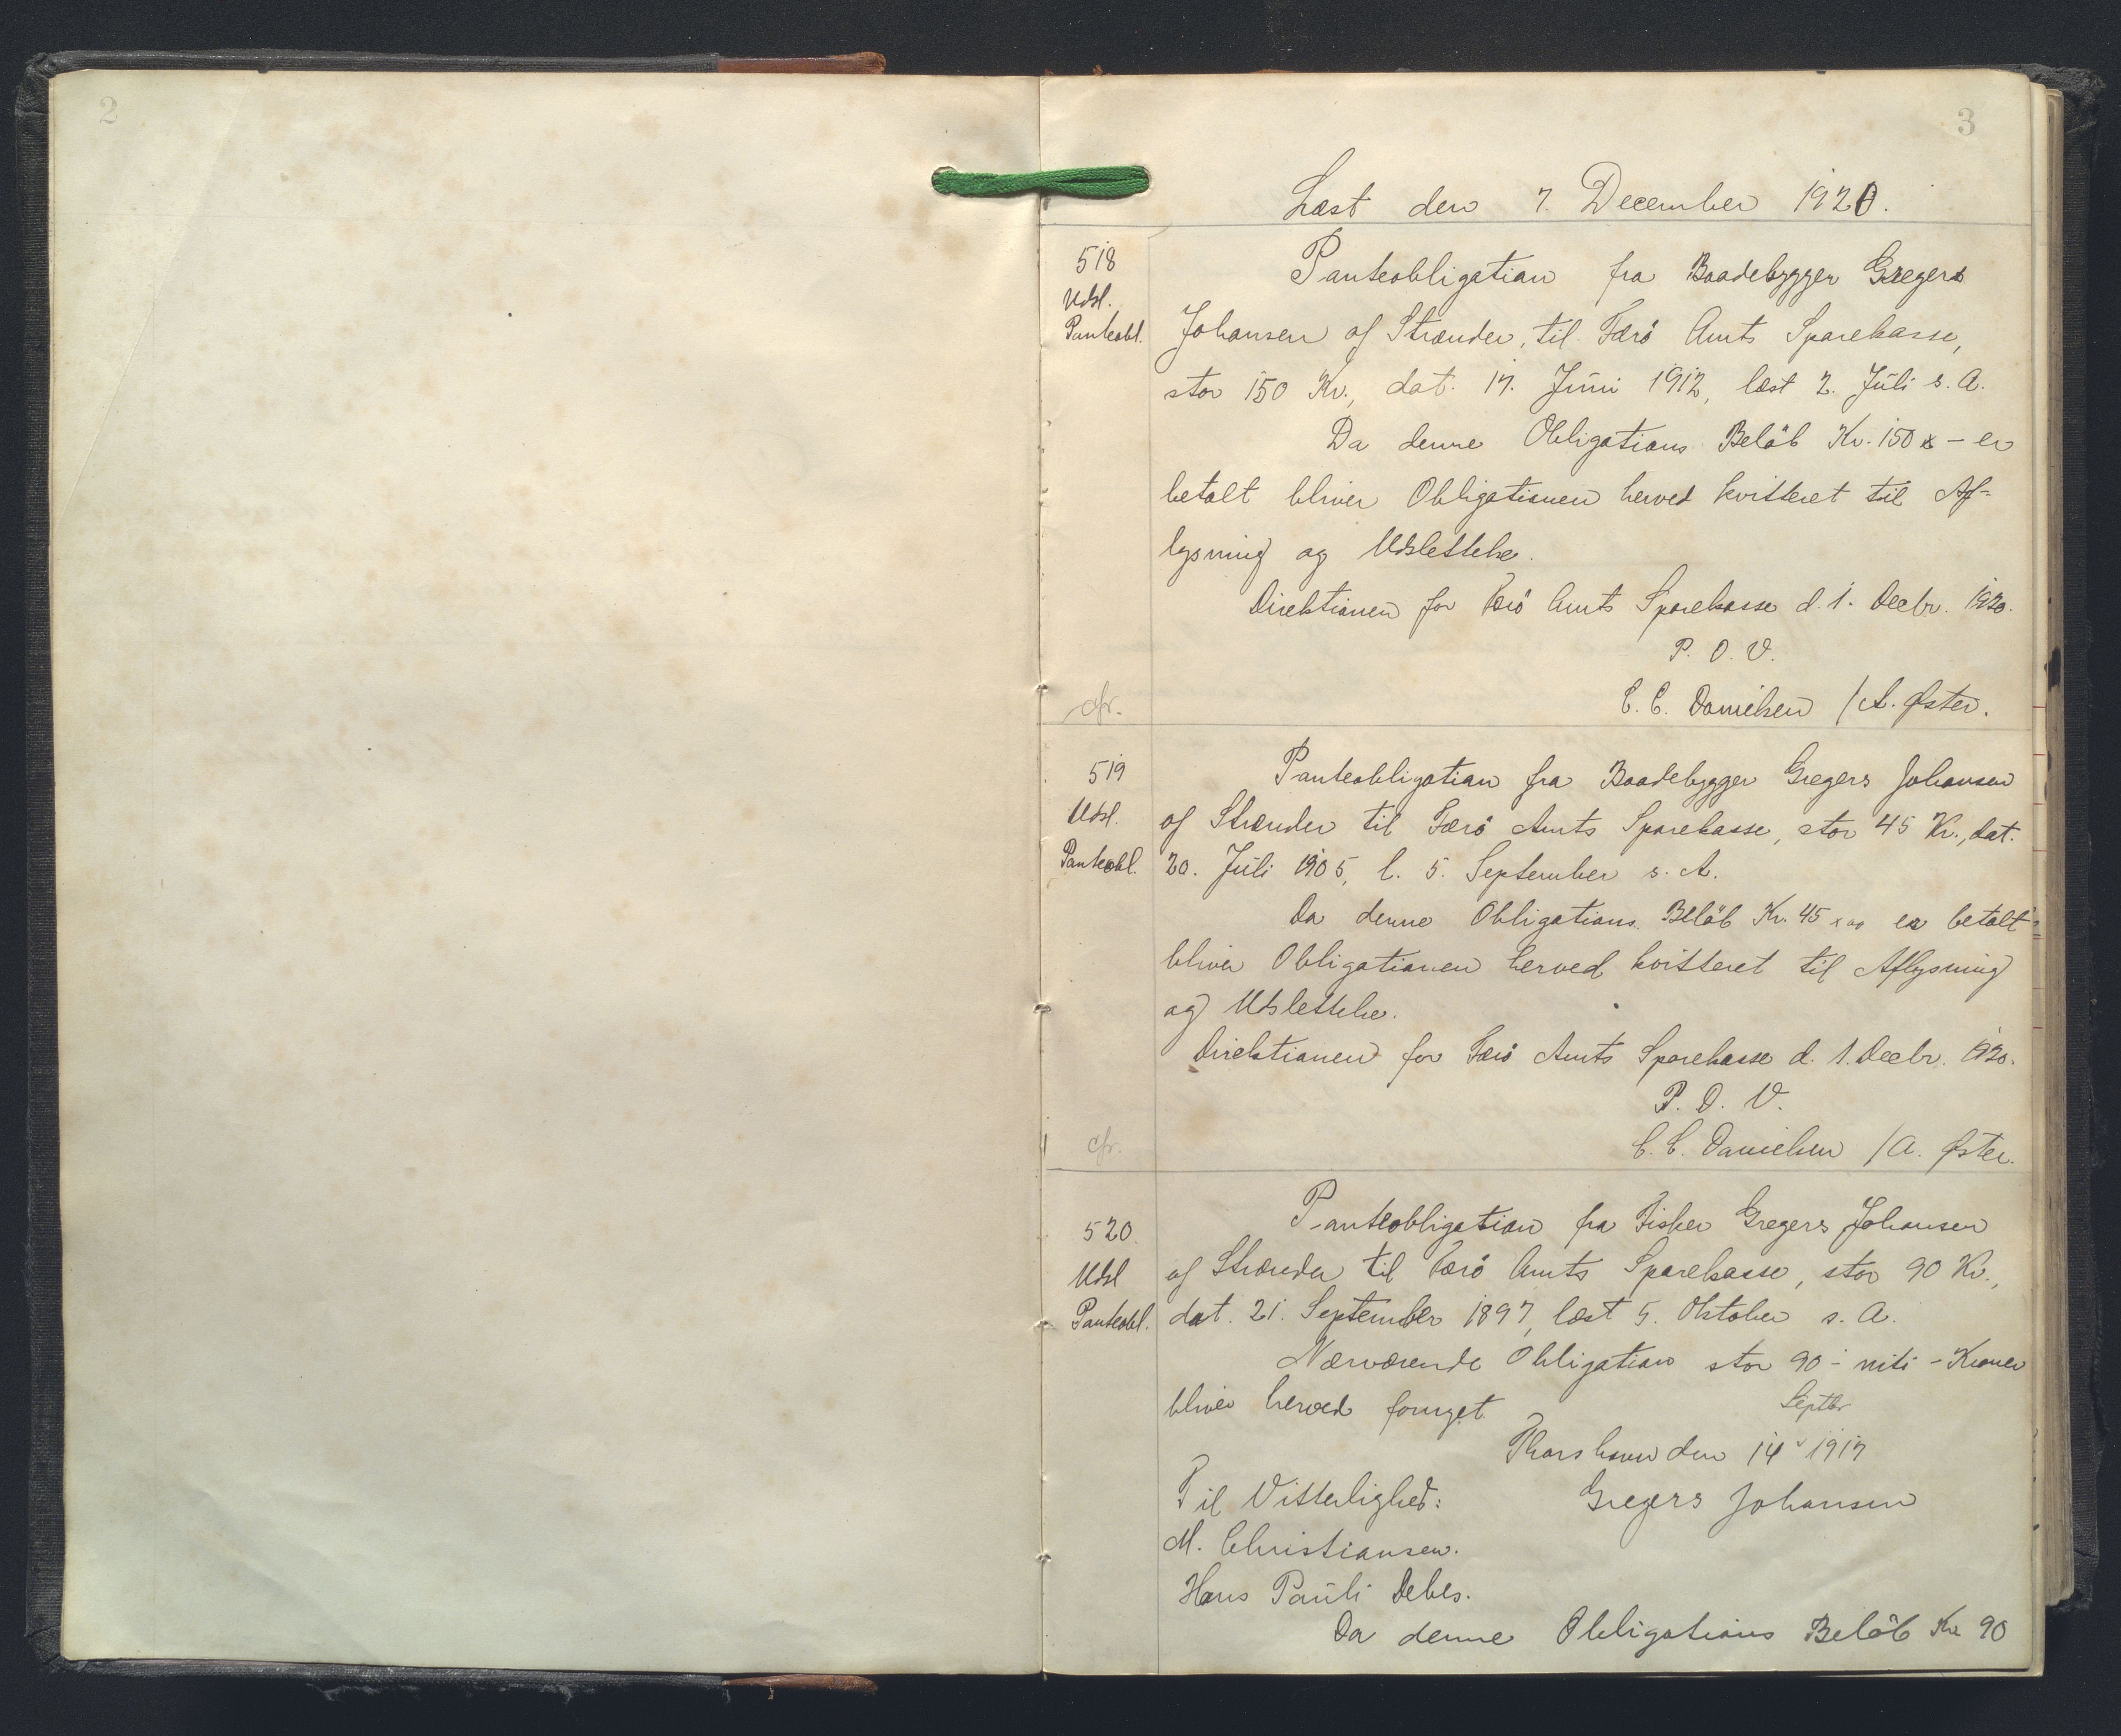 2
3
Læst den 7. December 1920.
518
Udsl.
Panteobl.
Panteobligation fra Baadebygger Gregers
Johansen af Strænder, til Færö Amts Sparekasse,
stor 150 Kr., dat. 17. Juni 1912, læst 2. Juli s. A.
Da denne Obligations Belöb Kr. 150 x - er
betalt bliver Obligationen herved kvitteret til Af=
lysning og Udslettelse.
Direktionen for Færö Amts Sparekasse d. 1. Decbr. 1920.
P. D. V.
C. C. Danielsen / A. Øster.
cfr.
519
Udsl.
Panteobl.
Panteobligation fra Baadebygger Gregers Johansen
af Strænder til Færö Amts Sparekasse, stor 45 Kr., dat.
20. Juli 1905, l. 5. September s. A.
Da denne Obligations Belöb Kr. 45 x 00 er betalt
bliver Obligationen herved kvitteret til Aflysning
og Udslettelse.
Direktionen for Færö Amts Sparekasse d. 1. Decbr. 1920.
P. D. V.
C. C. Danielsen / A. Øster.
cfr.
520
Udsl
Panteobl.
Panteobligation fra Fisker Gregers Johansen
af Strænder til Færö Amts Sparekasse, stor 90 Kr.,
dat. 21. September 1897, læst 5. Oktober s. A.
Nærværende Obligation stor 90 - niti - Kroner
bliver herved fornyet.
Septbr
Thorshavn den 14 1917
Til Vitterlighed:
Gregers Johansen
M. Christiansen.
Hans Pauli Debes.
Da denne Obligations Belöb Kr 90